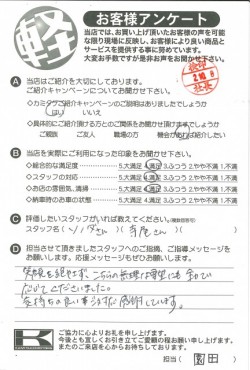 軽
お客様アンケート
当店では、お買い上げ頂いたお客様の声を可能
な限り現場に反映し、お客様により良い商品と
サービスを提供する事に努めています。
大変お手数ですが是非お声をお聞かせ下さい。
A 当店はご紹介を大切にしております。
ご紹介キャンペーンについてお聞かせ下さい。
ご紹介キャンペーンはありましたでしょうか
はい いいえ
ご親戚 ご友人 職場の方
B 当店を実際にご利用になった印象をお聞かせ下さい。
◇総合的な満足度 5大満足 4満足 3ふつう 2やや不満 1不満
◇スタッフの対応 5大満足 4満足 3ふつう 2やや不満 1不満
◇お店の雰囲気、清掃 5大満足 4満足 3ふつう 2やや不満 1不満
◇納車時のお車の状態 5大満足 4満足 3ふつう 2やや不満 1不満
C 評価したいスタッフがいれば教えてください。
スタッフ名( さん)( さん)
D 担当させて頂きましたスタッフへのご指摘、ご指導メッセージを
お願いします。応援メッセージもぜひお願いします。
笑顔を絶やさず、こちらの無理な要望にも
くださいました。
気持ちの良い 感謝しています。
K
ご協力に心よりお礼を申し上げます。
今後とも宜しくお引き立てご愛顧の程お願い申し上げます。
またのご来店を心からお待ちしております。
担当( 園田 )